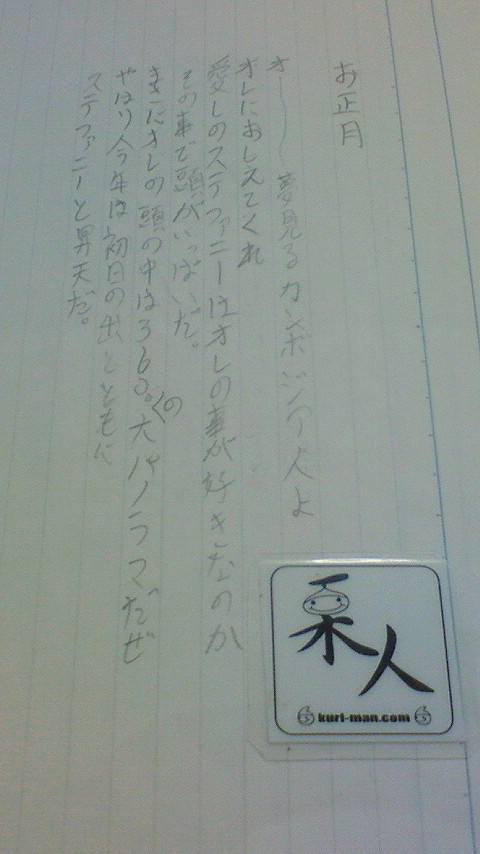 お正月
オーーー夢見るカンボジア人よ
オレにおしえてくれ
愛しのステファニーはオレの事が好きなのか
その事で頭がいっぱいだ。
まさにオレの頭の中は360°の大パノラマだぜ
やはり今年は初日の出とともに
ステファニーと昇天だ。
栗人
kuri-man.com